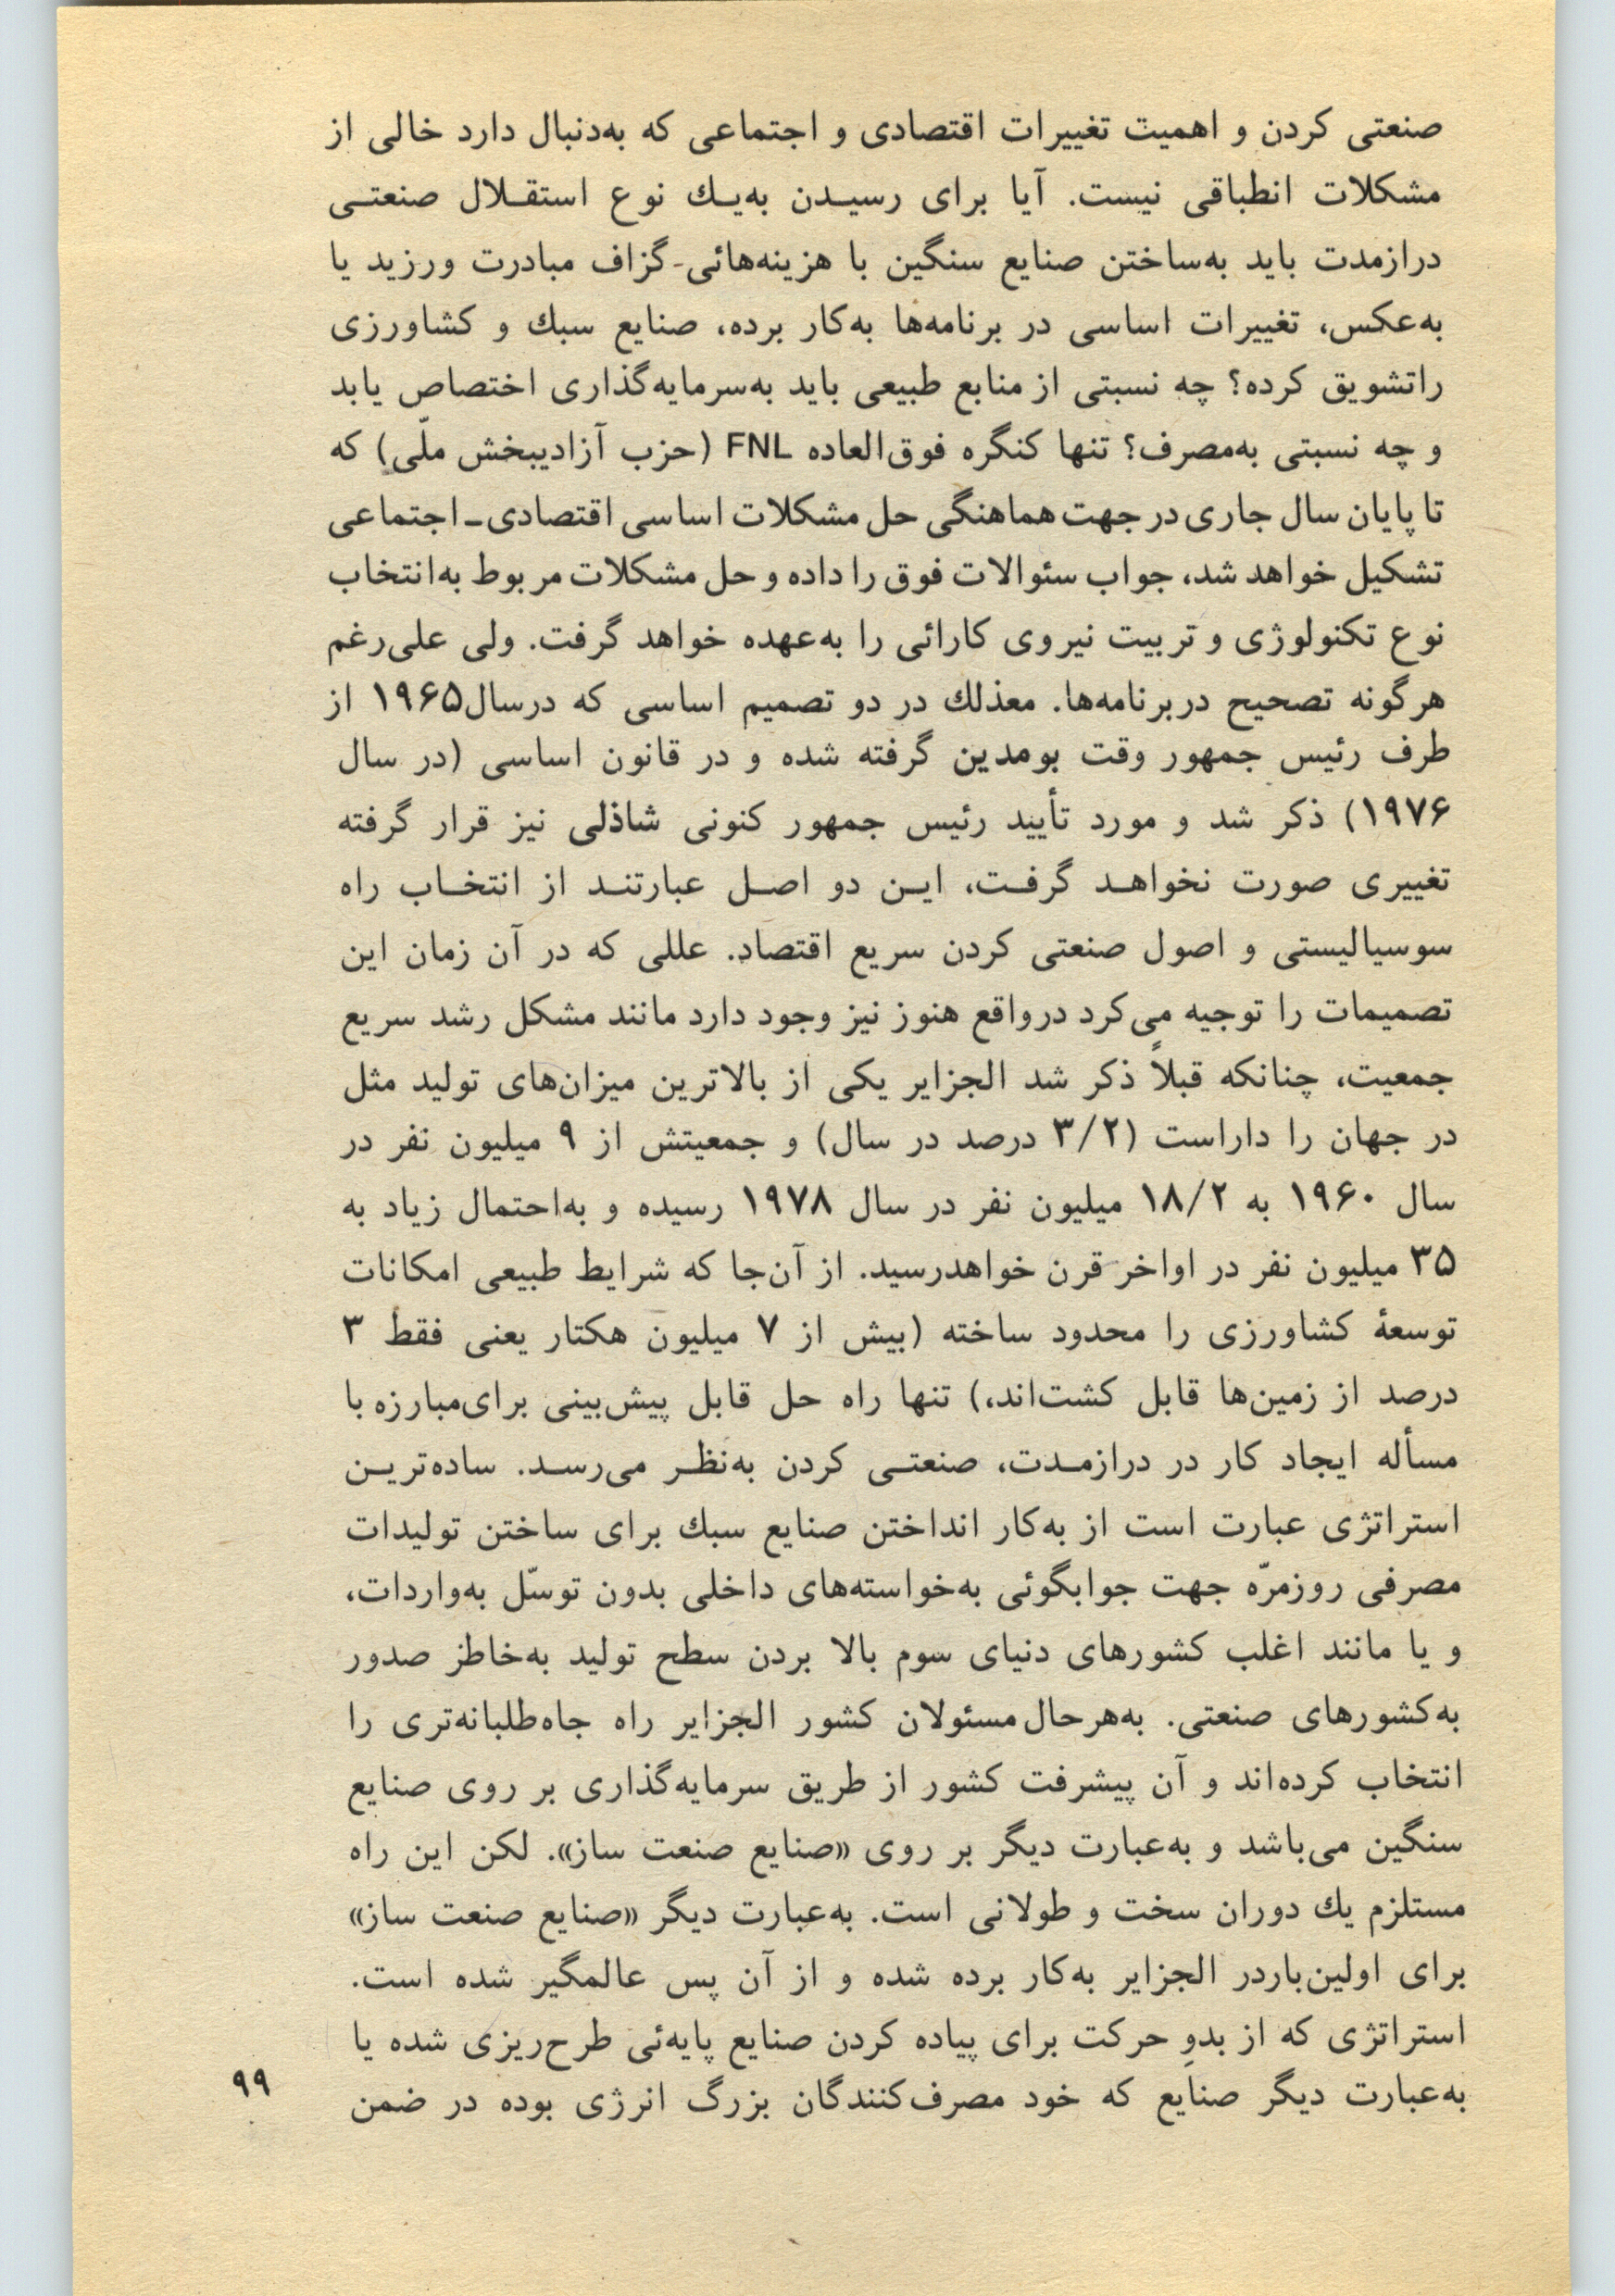 صنعتی کردن و اهمیت تغییرات اقتصادی و اجتماعی که به‌دنبال دارد خالی از
مشکلات انطباقی نیست. آیا برای رسیـدن به‌یـك نوع استقـلال صنعتـی
درازمدت باید به‌ساختن صنایع سنگین با هزینه‌هائی گزاف مبادرت ورزید یا
به‌عکس، تغییرات اساسی در برنامه‌ها به‌کار برده، صنایع سبك و کشاورزی
راتشویق کرده؟ چه نسبتی از منابع طبیعی باید به‌سرمایه‌گذاری اختصاص یابد
و چه نسبتی به‌مصرف؟ تنها کنگره فوق‌العاده FNL (حزب آزادیبخش ملّی) که
تا پایان سال جاری در جهت هماهنگی حل مشکلات اساسی اقتصادی ـ اجتماعی
تشکیل خواهد شد، جواب سئوالات فوق را داده و حل مشکلات مربوط به‌انتخاب
نوع تکنولوژی و تربیت نیروی کارائی را به‌عهده خواهد گرفت. ولی علی‌رغم
هرگونه تصحیح دربرنامه‌ها. معذلك در دو تصمیم اساسی که درسال۱۹۶۵ از
طرف رئیس جمهور وقت بومدین گرفته شده و در قانون اساسی (در سال
۱۹۷۶) ذکر شد و مورد تأیید رئیس جمهور کنونی شاذلی نیز قرار گرفته
تغییری صورت نخواهـد گرفـت، ایـن دو اصـل عبارتنـد از انتخـاب راه
سوسیالیستی و اصول صنعتی کردن سریع اقتصاد. عللی که در آن زمان این
تصمیمات را توجیه می‌کرد درواقع هنوز نیز وجود دارد مانند مشکل رشد سریع
جمعیت، چنانکه قبلاً ذکر شد الجزایر یکی از بالاترین میزان‌های تولید مثل
در جهان را داراست (۳/۲ درصد در سال) و جمعیتش از ۹ میلیون نفر در
سال ۱۹۶۰ به ۱۸/۲ میلیون نفر در سال ۱۹۷۸ رسیده و به‌احتمال زیاد به
۳۵ میلیون نفر در اواخر قرن خواهدرسید. از آن‌جا که شرایط طبیعی امکانات
توسعهٔ کشاورزی را محدود ساخته (بیش از ۷ میلیون هکتار یعنی فقط ۳
درصد از زمین‌ها قابل کشت‌اند،) تنها راه حل قابل پیش‌بینی برای‌مبارزه با
مسأله ایجاد کار در درازمـدت، صنعتـی کردن به‌نظـر می‌رسـد. ساده‌تریـن
استراتژی عبارت است از به‌کار انداختن صنایع سبك برای ساختن تولیدات
مصرفی روزمرّه جهت جوابگوئی به‌خواسته‌های داخلی بدون توسّل به‌واردات،
و یا مانند اغلب کشورهای دنیای سوم بالا بردن سطح تولید به‌خاطز صدور
به‌کشورهای صنعتی. به‌هرحال مسئولان کشور الجزایر راه جاه‌طلبانه‌تری را
انتخاب کرده‌اند و آن پیشرفت کشور از طریق سرمایه‌گذاری بر روی صنایع
سنگین می‌باشد و به‌عبارت دیگر بر روی «صنایع صنعت ساز». لکن این راه
مستلزم یك دوران سخت و طولانی است. به‌عبارت دیگر «صنایع صنعت ساز»
برای اولین‌باردر الجزایر به‌کار برده شده و از آن پس عالمگیر شده است.
استراتژی که از بدوِ حرکت برای پیاده کردن صنایع پایه‌ئی طرح‌ریزی شده یا
به‌عبارت دیگر صنایع که خود مصرف‌کنندگان بزرگ انرژی بوده در ضمن
۹۹